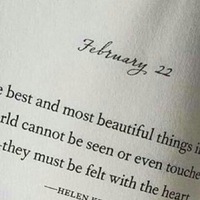 February 22
best and most beautiful things
cannot be seen or even
—they must be felt with the heart
—HELEN